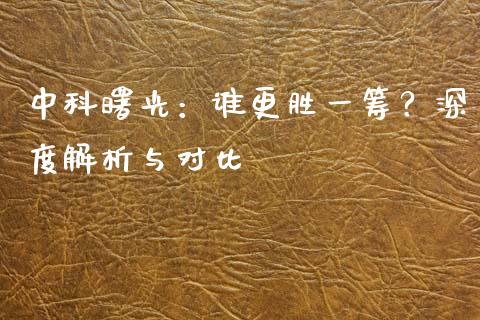 中科曙光：谁更胜一筹？深
度解析与对比